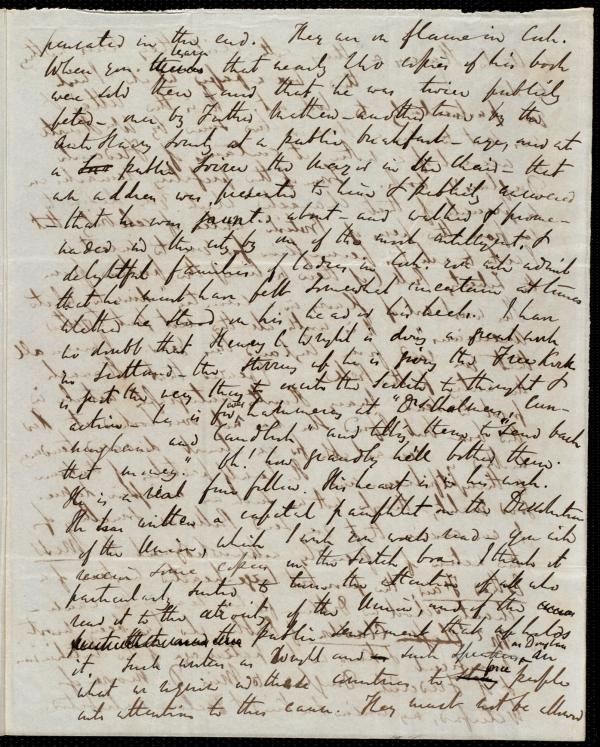 in the end. They are on flame in Cork.
When you learn that nearly two copies of his book
were sold there, and that he was twice publicly
feted - once by Father Mathew - another time by the
Anti Slavery Society at a public breakfast - again at
a public Soiree the Mayor in the Chair - that
an address was presented to him & publicly answered
- that he was about - and walked & prome-
naded in the city by one of the most intelligent &
delightful families of ladies in Cork. you will admit
that he must have felt somewhat uncertain at times
whether he stood on his head or his heels. I have
no doubt that Henry C Wright is doing a great work
in Scotland - the stirring up he is giving the Free Kirk
is just the very thing to excite the Scotch to thought &
action - he is for hammering at "Dr Chalmers, Cun-
ningham and Candlish" and telling them to "Send back
that money." Oh! how grandly he'll bother them.
He is a real fine fellow. His heart is in his work.
He has written a capital pamphlet on the Dissolution
of the Union, which I wish our would read - you will
receive some copies in the Scotch box. I think it
particularly suited to turn the attention of all who
read it to the atrocity of the Union, and of the
public sentiment that upholds
it. Such writers as Wright and such speakers as Douglass are
what we require in these countries to people
attention to this cause. They must not be allowed